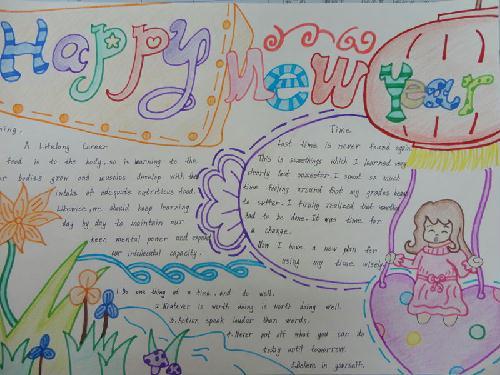 Happy New Year
ning.
A Lifelong Career
food is to the body, so is learning to the
r bodies grow and muscles develop with the
intake of adequate nutritious food.
Likewise, we should keep learning
day by day to maintain our
keen mental power and expand
our intellectual capacity.
Time
Past time is never found again
This is something which I learned very
clearly last semester. I spent so much
time fooling around that my grades began
to suffer. I finally realized that something
had to be done. It was time for
a change.
Now I have a new plan for
using my time wisely
1. Do one thing at a time, and do well.
2. Whatever is worth doing is worth doing well.
3. Action speak louder than words.
4. Never put off what you can do
today until tomorrow.
5. Believe in yourself.